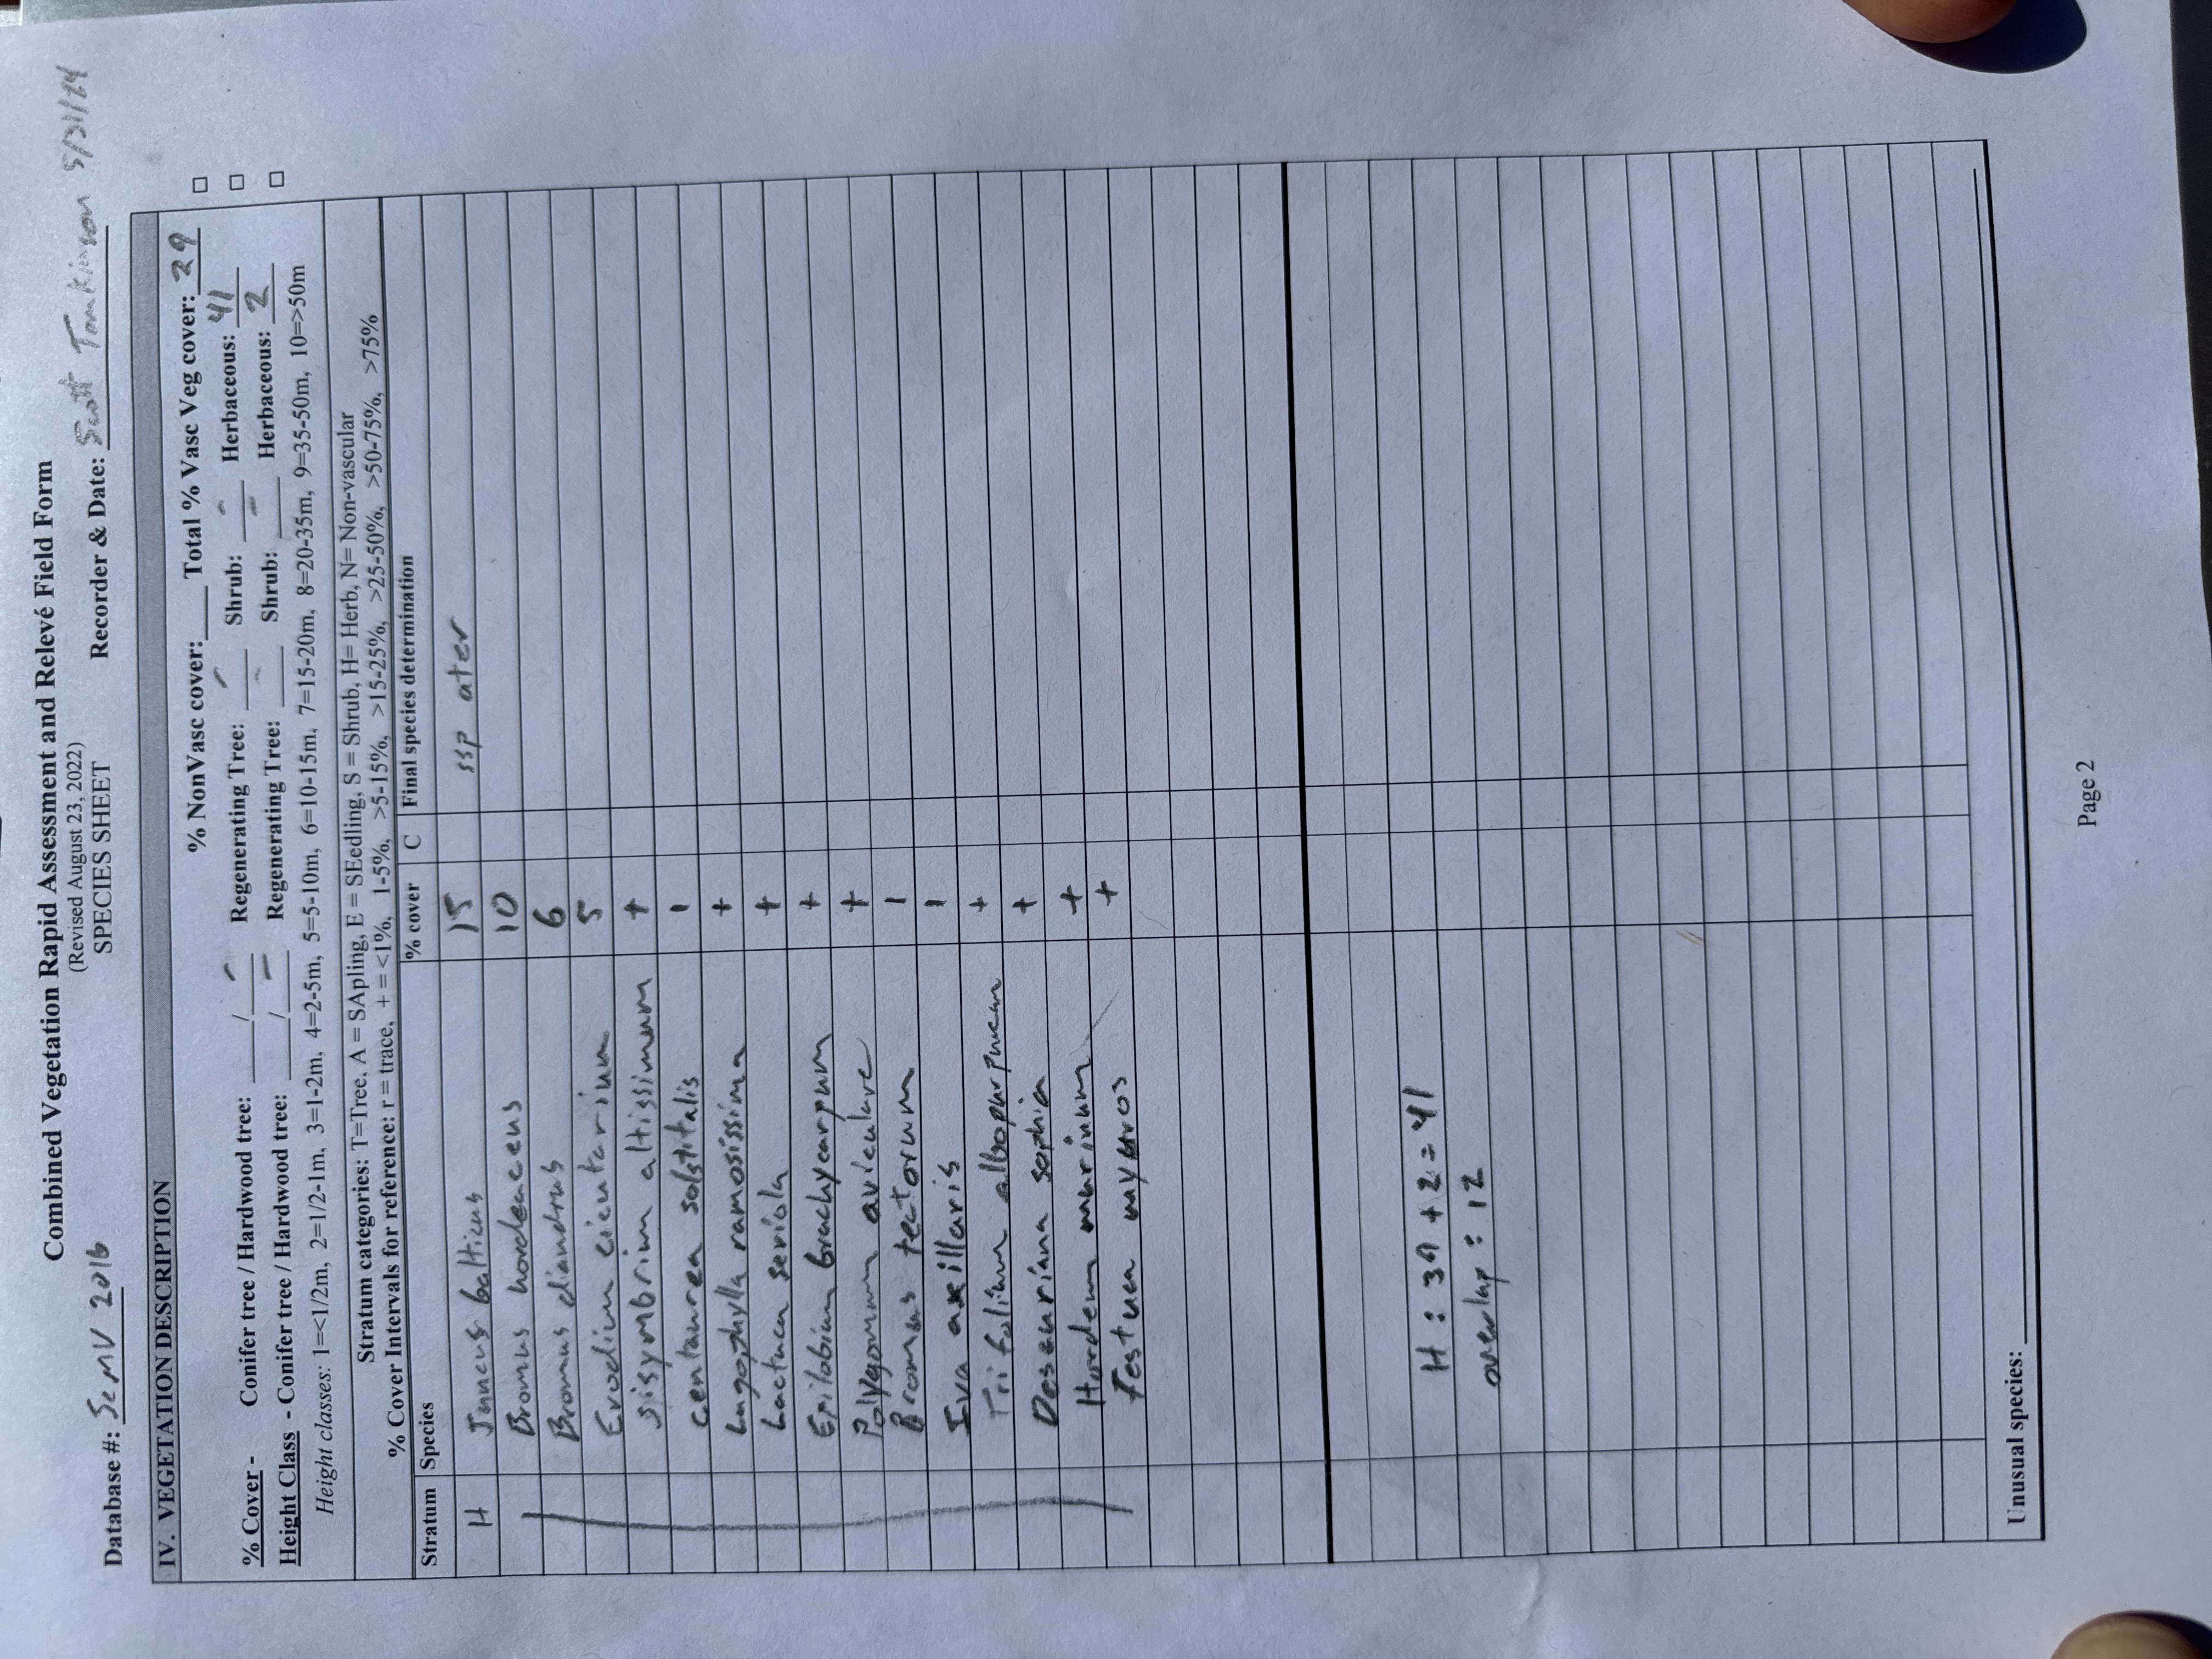 Combined Vegetation Rapid Assessment and Relevé Field Form
(Revised August 23, 2022)
SPECIES SHEET
Database #: SeMV 2016 Recorder & Date: Scott Tomkinson 5/31/24
IV. VEGETATION DESCRIPTION
% NonVasc cover:___ Total % Vasc Veg cover: 29
% Cover - Conifer tree / Hardwood tree: ___/_-_ Regenerating Tree: - Shrub: - Herbaceous: 41
Height Class - Conifer tree / Hardwood tree: ___/_-_ Regenerating Tree: - Shrub: - Herbaceous: 2
Height classes: 1=<1/2m, 2=1/2-1m, 3=1-2m, 4=2-5m, 5=5-10m, 6=10-15m, 7=15-20m, 8=20-35m, 9=35-50m, 10=>50m
Stratum categories: T=Tree, A = SApling, E = SEedling, S = Shrub, H= Herb, N= Non-vascular
% Cover Intervals for reference: r = trace, + = <1%, 1-5%, >5-15%, >15-25%, >25-50%, >50-75%, >75%
Stratum Species % cover C Final species determination
H Juncus balticus 15 ssp ater
Bromus hordeaceus 10
Bromus diandrus 6
Erodium cicutarium 5
Sisymbrium altissimum +
Centaurea solstitalis 1
Lagophylla ramosissima +
Lactuca seriola +
Epilobium brachycarpum +
Polygonum aviculare +
Bromus tectorum 1
Iva axillaris 1
Trifolium albopurpureum +
Descuriana sophia +
Hordeum marinum +
Festuca myuros +
H : 39 + 2 = 41
overlap : 12
Unusual species:
Page 2